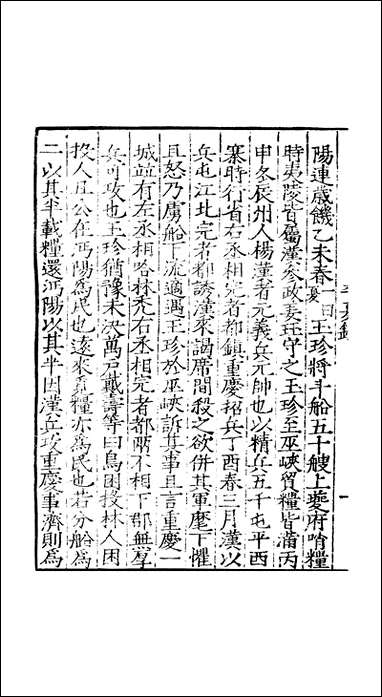 陽連歲饑乙未春一曰夏王珍將斗船五十艘上夔府哨糧
時夷陵皆屬漢參政姜珏守之王珍至巫峽貿糧皆滿丙
申冬辰州人楊漢者元義兵元帥也以精兵五千屯平西
寨時行省右丞相完者都鎮重慶招兵丁酉春三月漢以
兵屯江北完者都誘漢來謁席間殺之欲併其軍麾下懼
且怒乃虜船下流適遇王珍於巫峽訴其事且言重慶一
城竝有左丞相哈林禿右丞相完者都兩不相下郡無厚
兵可攻也王珍猶豫未決萬戶戴壽等曰鳥困投林人困
投人且公在沔陽為民也遠來覓糧亦為民也若分船為
二以其半載糧還沔陽以其半因漢兵攻重慶事濟則為